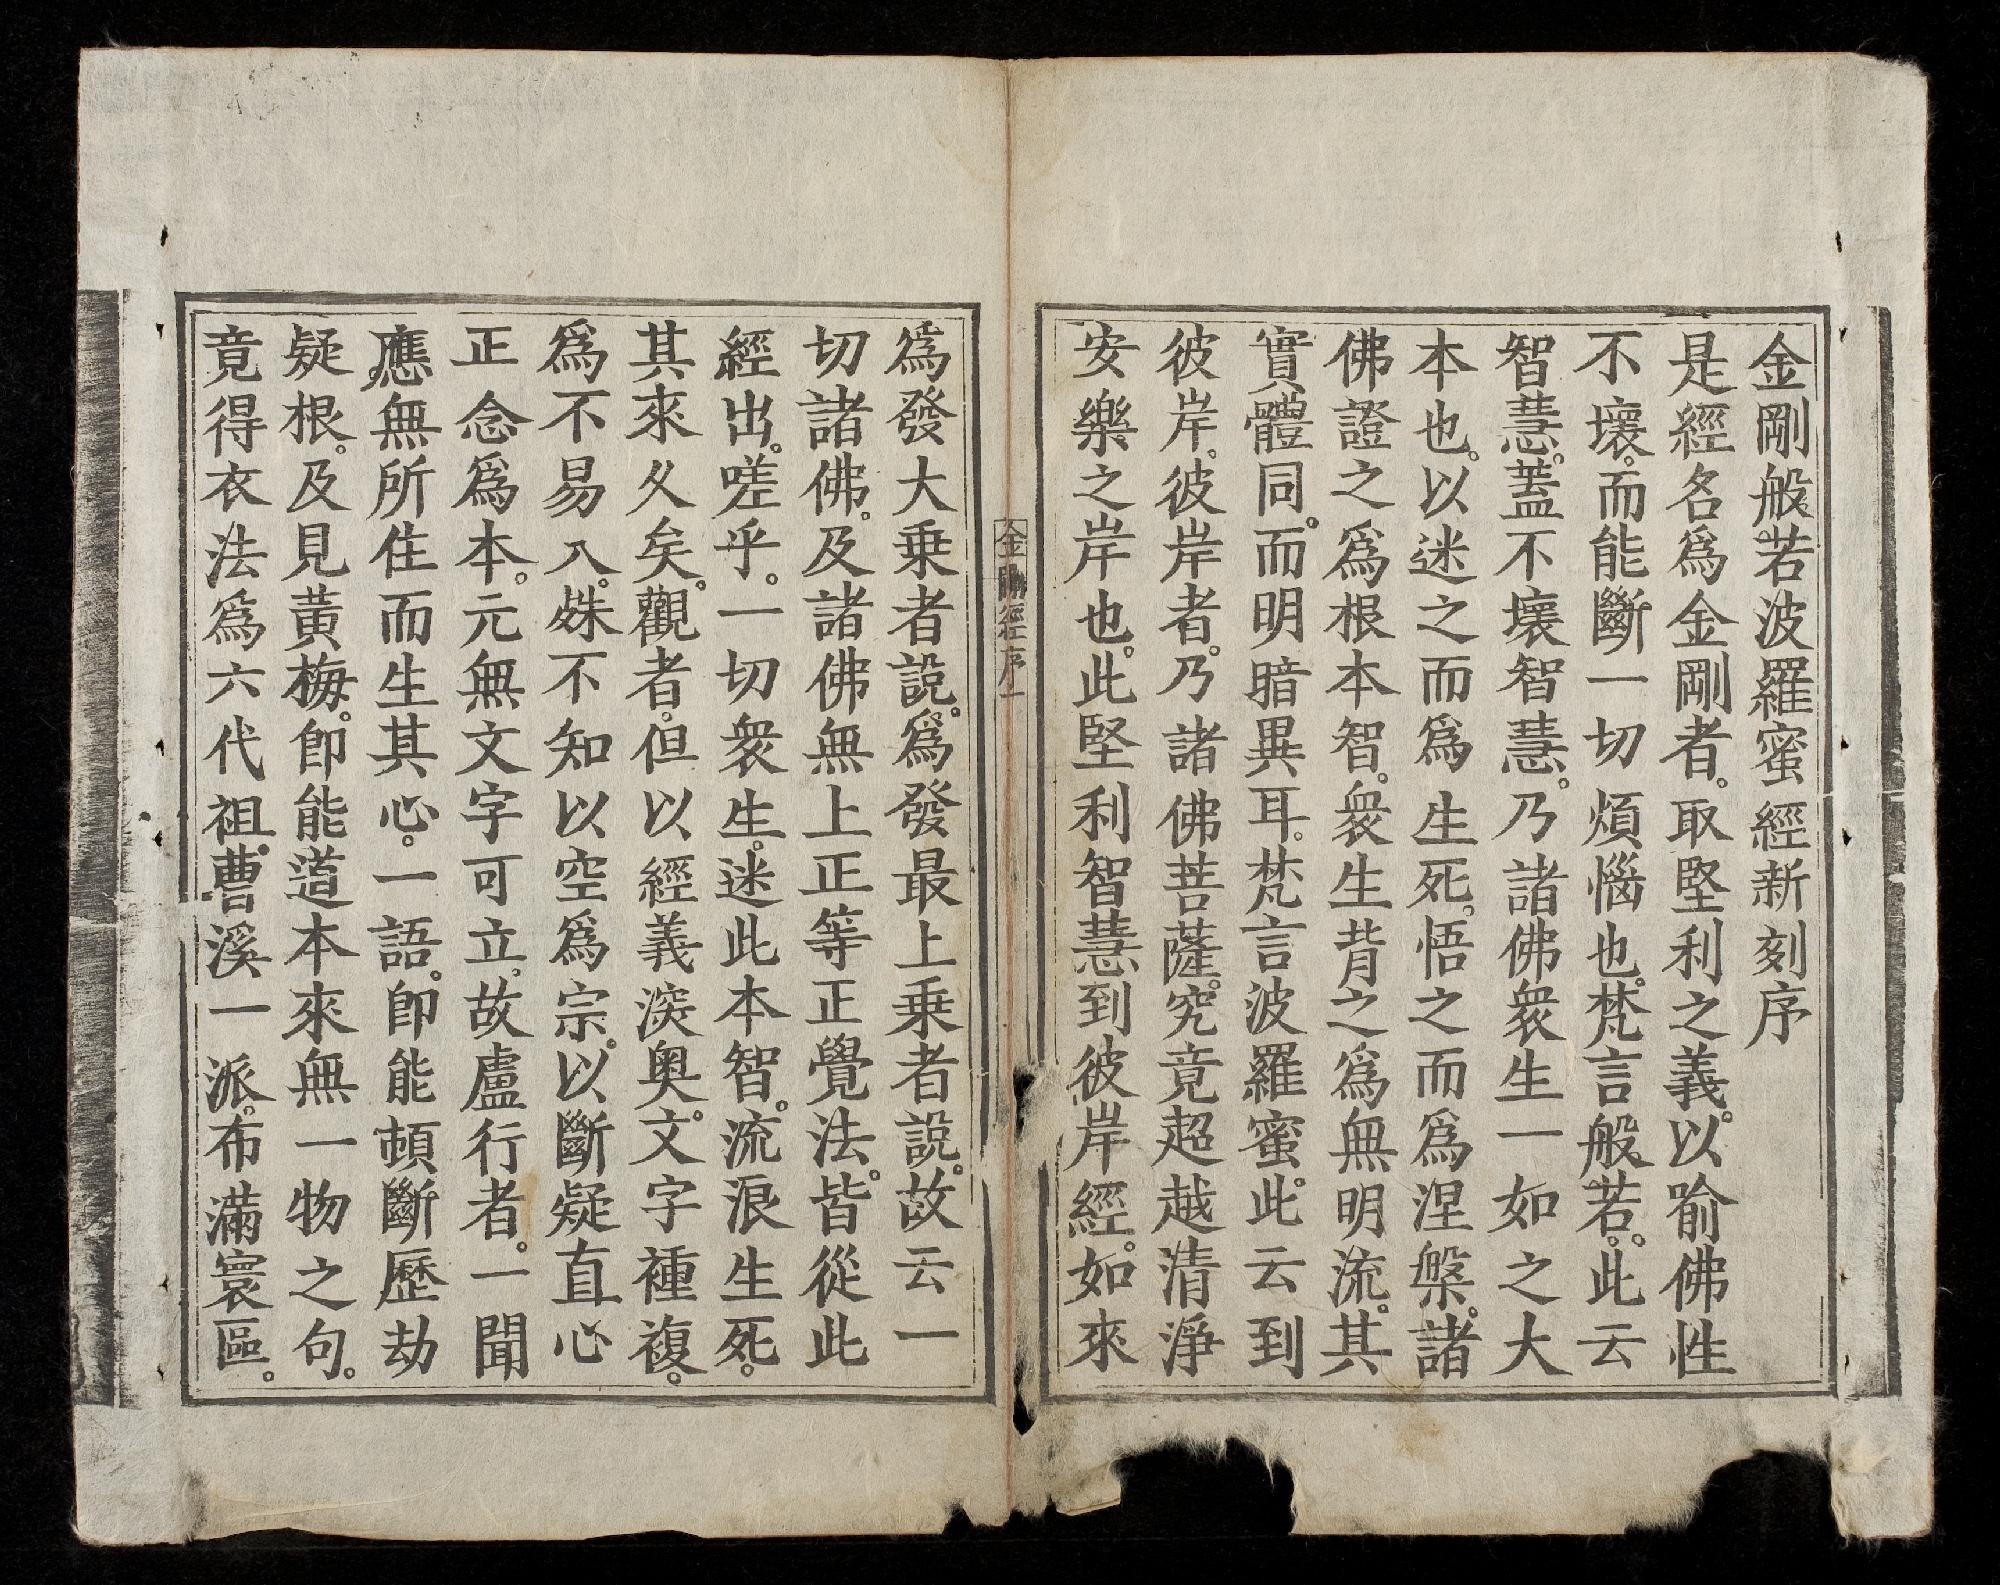 金剛般若波羅蜜經新刻序
是經名爲金剛者。取堅利之義。以喻佛性
不壞。而能斷一切煩惱也。梵言般若。此云
智慧。蓋不壞智慧。乃諸佛衆生一如之大
本也。以迷之而爲生死。悟之而爲涅槃。諸
佛證之爲根本智。衆生背之爲無明流。其
實體同。而明暗異耳。梵言波羅蜜。此云到
彼岸。彼岸者。乃諸佛菩薩。究竟超越清淨
安樂之岸也。此堅利智慧到彼岸經。如來
金剛經序一
爲發大乗者説。爲發最上乗者説。故云一
切諸佛。及諸佛無上正等正覺法。皆從此
經出。嗟乎。一切衆生。迷此本智。流浪生死。
其來久矣。觀者。但以經義深奥。文字種複。
爲不易入。殊不知以空爲宗。以斷疑直心
正念爲本。元無文字可立。故盧行者。一聞
應無所住而生其心。一語。即能頓斷歷劫
疑根。及見黃梅。即能道本來無一物之句。
竟得衣法爲六代祖。曹溪一派。布滿寰區。